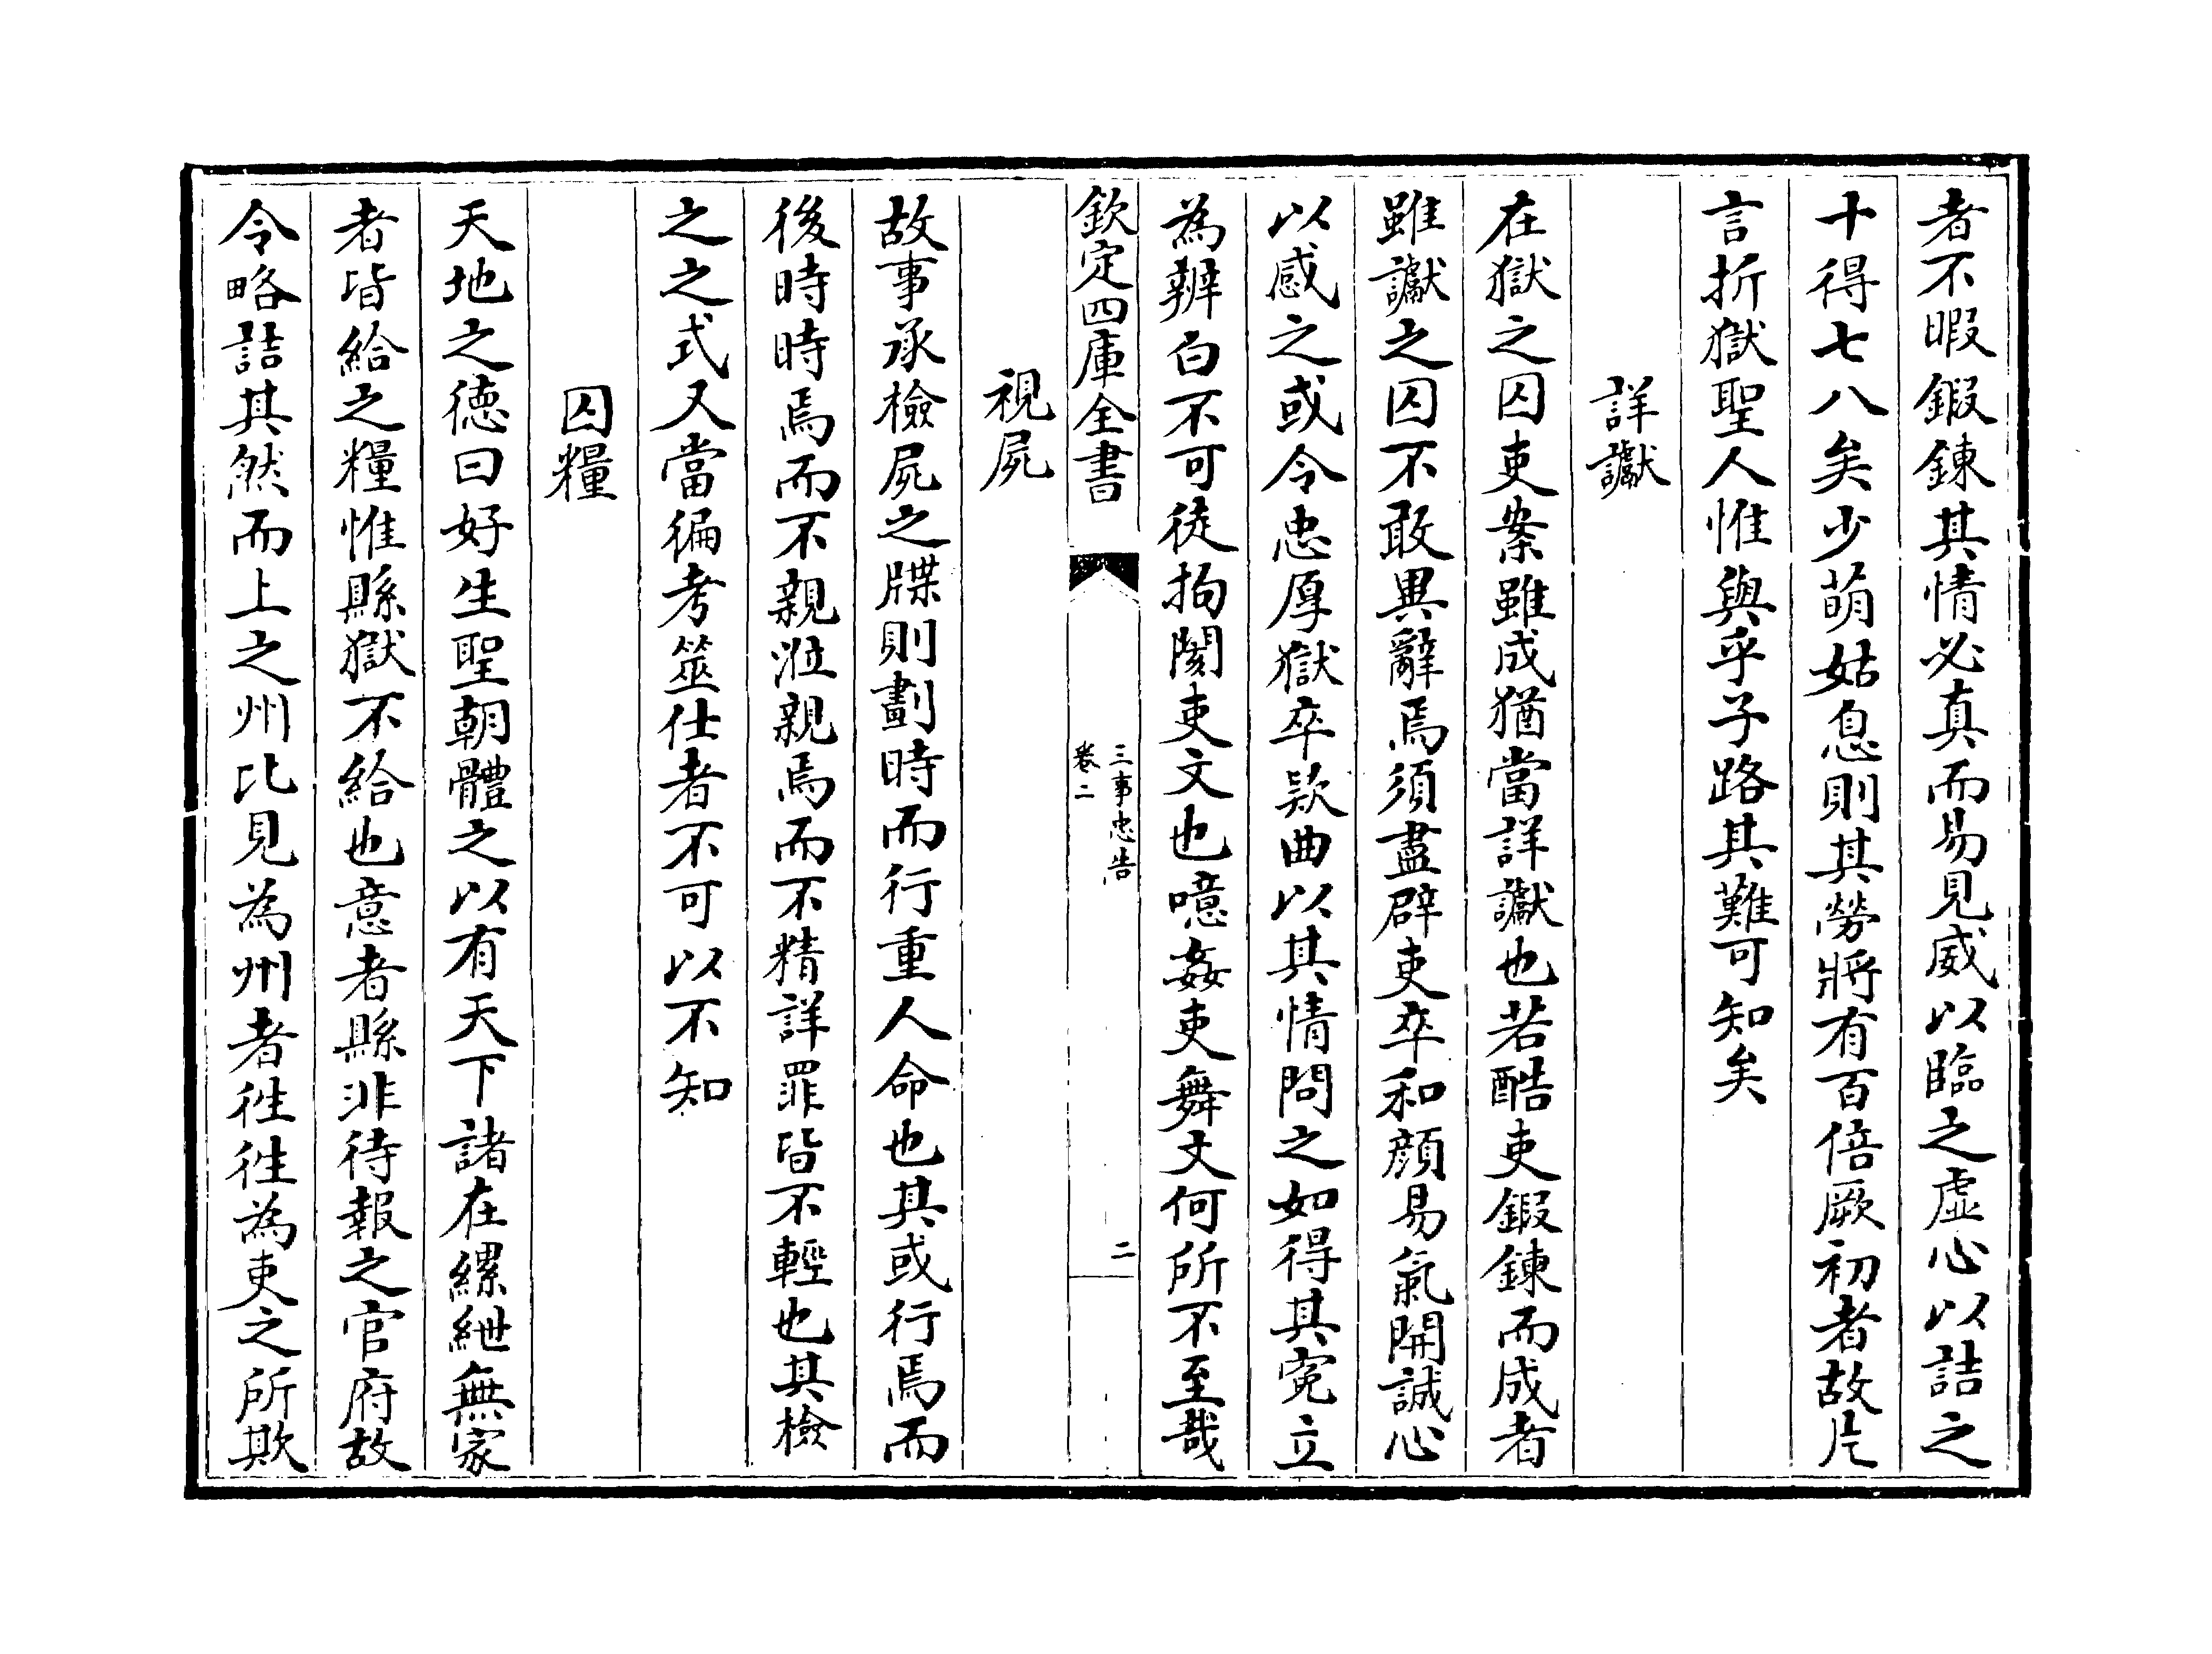 者不暇鍜鍊其情必真而易見威以臨之虚心以詰之
十得七八矣少萌姑息則其勞將有百倍厥初者故片
言折獄聖人惟與乎子路其難可知矣
詳讞
在獄之囚吏案雖成猶當詳讞也若酷吏鍜鍊而成者
雖讞之囚不敢異辭焉須盡辟吏卒和顔易氣開誠心
以感之或令忠厚獄卒欵曲以其情問之如得其寃立
為辨白不可徒拘閡吏文也噫姦吏舞文何所不至哉
欽定四庫全書
三事忠告
卷二
二
視屍
故事承檢屍之牒則劃時而行重人命也其或行焉而
後時時焉而不親涖親焉而不精詳罪皆不輕也其檢
之之式又當徧考筮仕者不可以不知
囚糧
天地之德曰好生聖朝體之以有天下諸在縲紲無家
者皆給之糧惟縣獄不給也意者縣非待報之官府故
令略詰其然而上之州比見為州者徃徃為吏之所欺